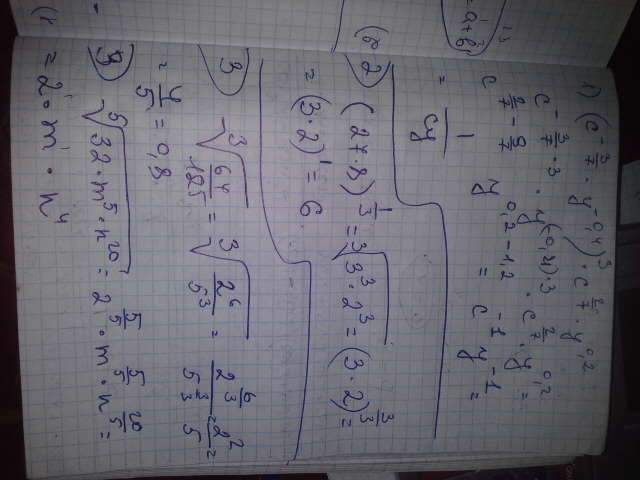 1) (c^{-3/7} · y^{-0,4})^3 · c^{2/7} · y^{0,2}
c^{-3/7 · 3} · y^{(-0,4)·3} · c^{2/7} · y^{0,2} =
c^{2/7 - 9/7} y^{0,2-1,2} = c^{-1} y^{-1} =
= 1/cy
2 (27·8)^{1/3} = ∛(3^3·2^3) = (3·2)^{3/3} =
= (3·2)^1 = 6
3 ∛(64/125) = ∛(2^6/5^3) = 2^{6/3}/5^{3/3} = 2^2/5 =
= 4/5 = 0,8
⁵√(32·m^5·n^{20}) = 2^{5/5} · m^{5/5} · n^{20/5} =
= 2^1 · m^1 · n^4